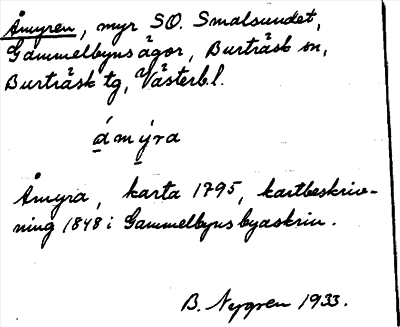 Åmyren, myr SO. Smalsundet,
Gammelbyns ägor, Burträsk sn,
Burträsk tg, Västerb.l.
ámýra
Åmyra, karta 1795, kartbeskriv-
ning 1848 i Gammelbyns byaskrin.
B. Nygren 1933.